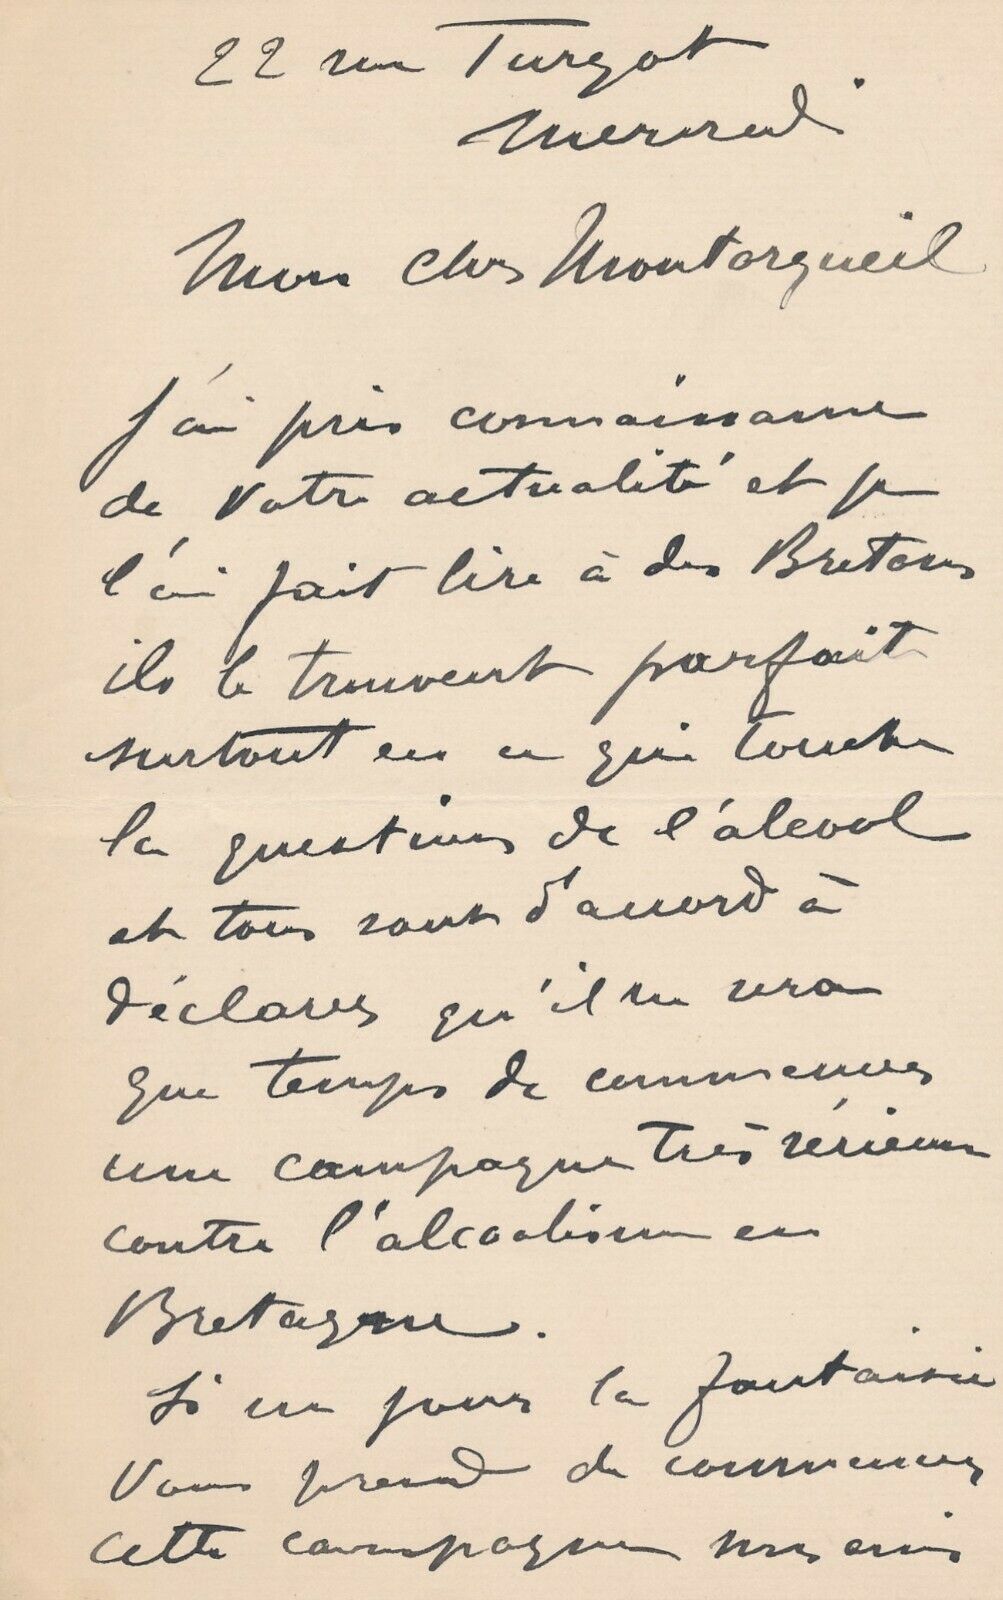 22 rue Turgot
Mercredi
Mon cher Montorgueil
J'ai pris connaissance
de votre actualité et je
l'ai fait lire à des Bretons
ils la trouvent parfaite
surtout en ce qui touche
la question de l'alcool
et tous sont d'accord à
déclarer qu'il ne sera
que temps de commencer
une campagne très sérieuse
contre l'alcoolisme en
Bretagne.
Si un jour la fantaisie
vous prend de commencer
cette campagne mes amis